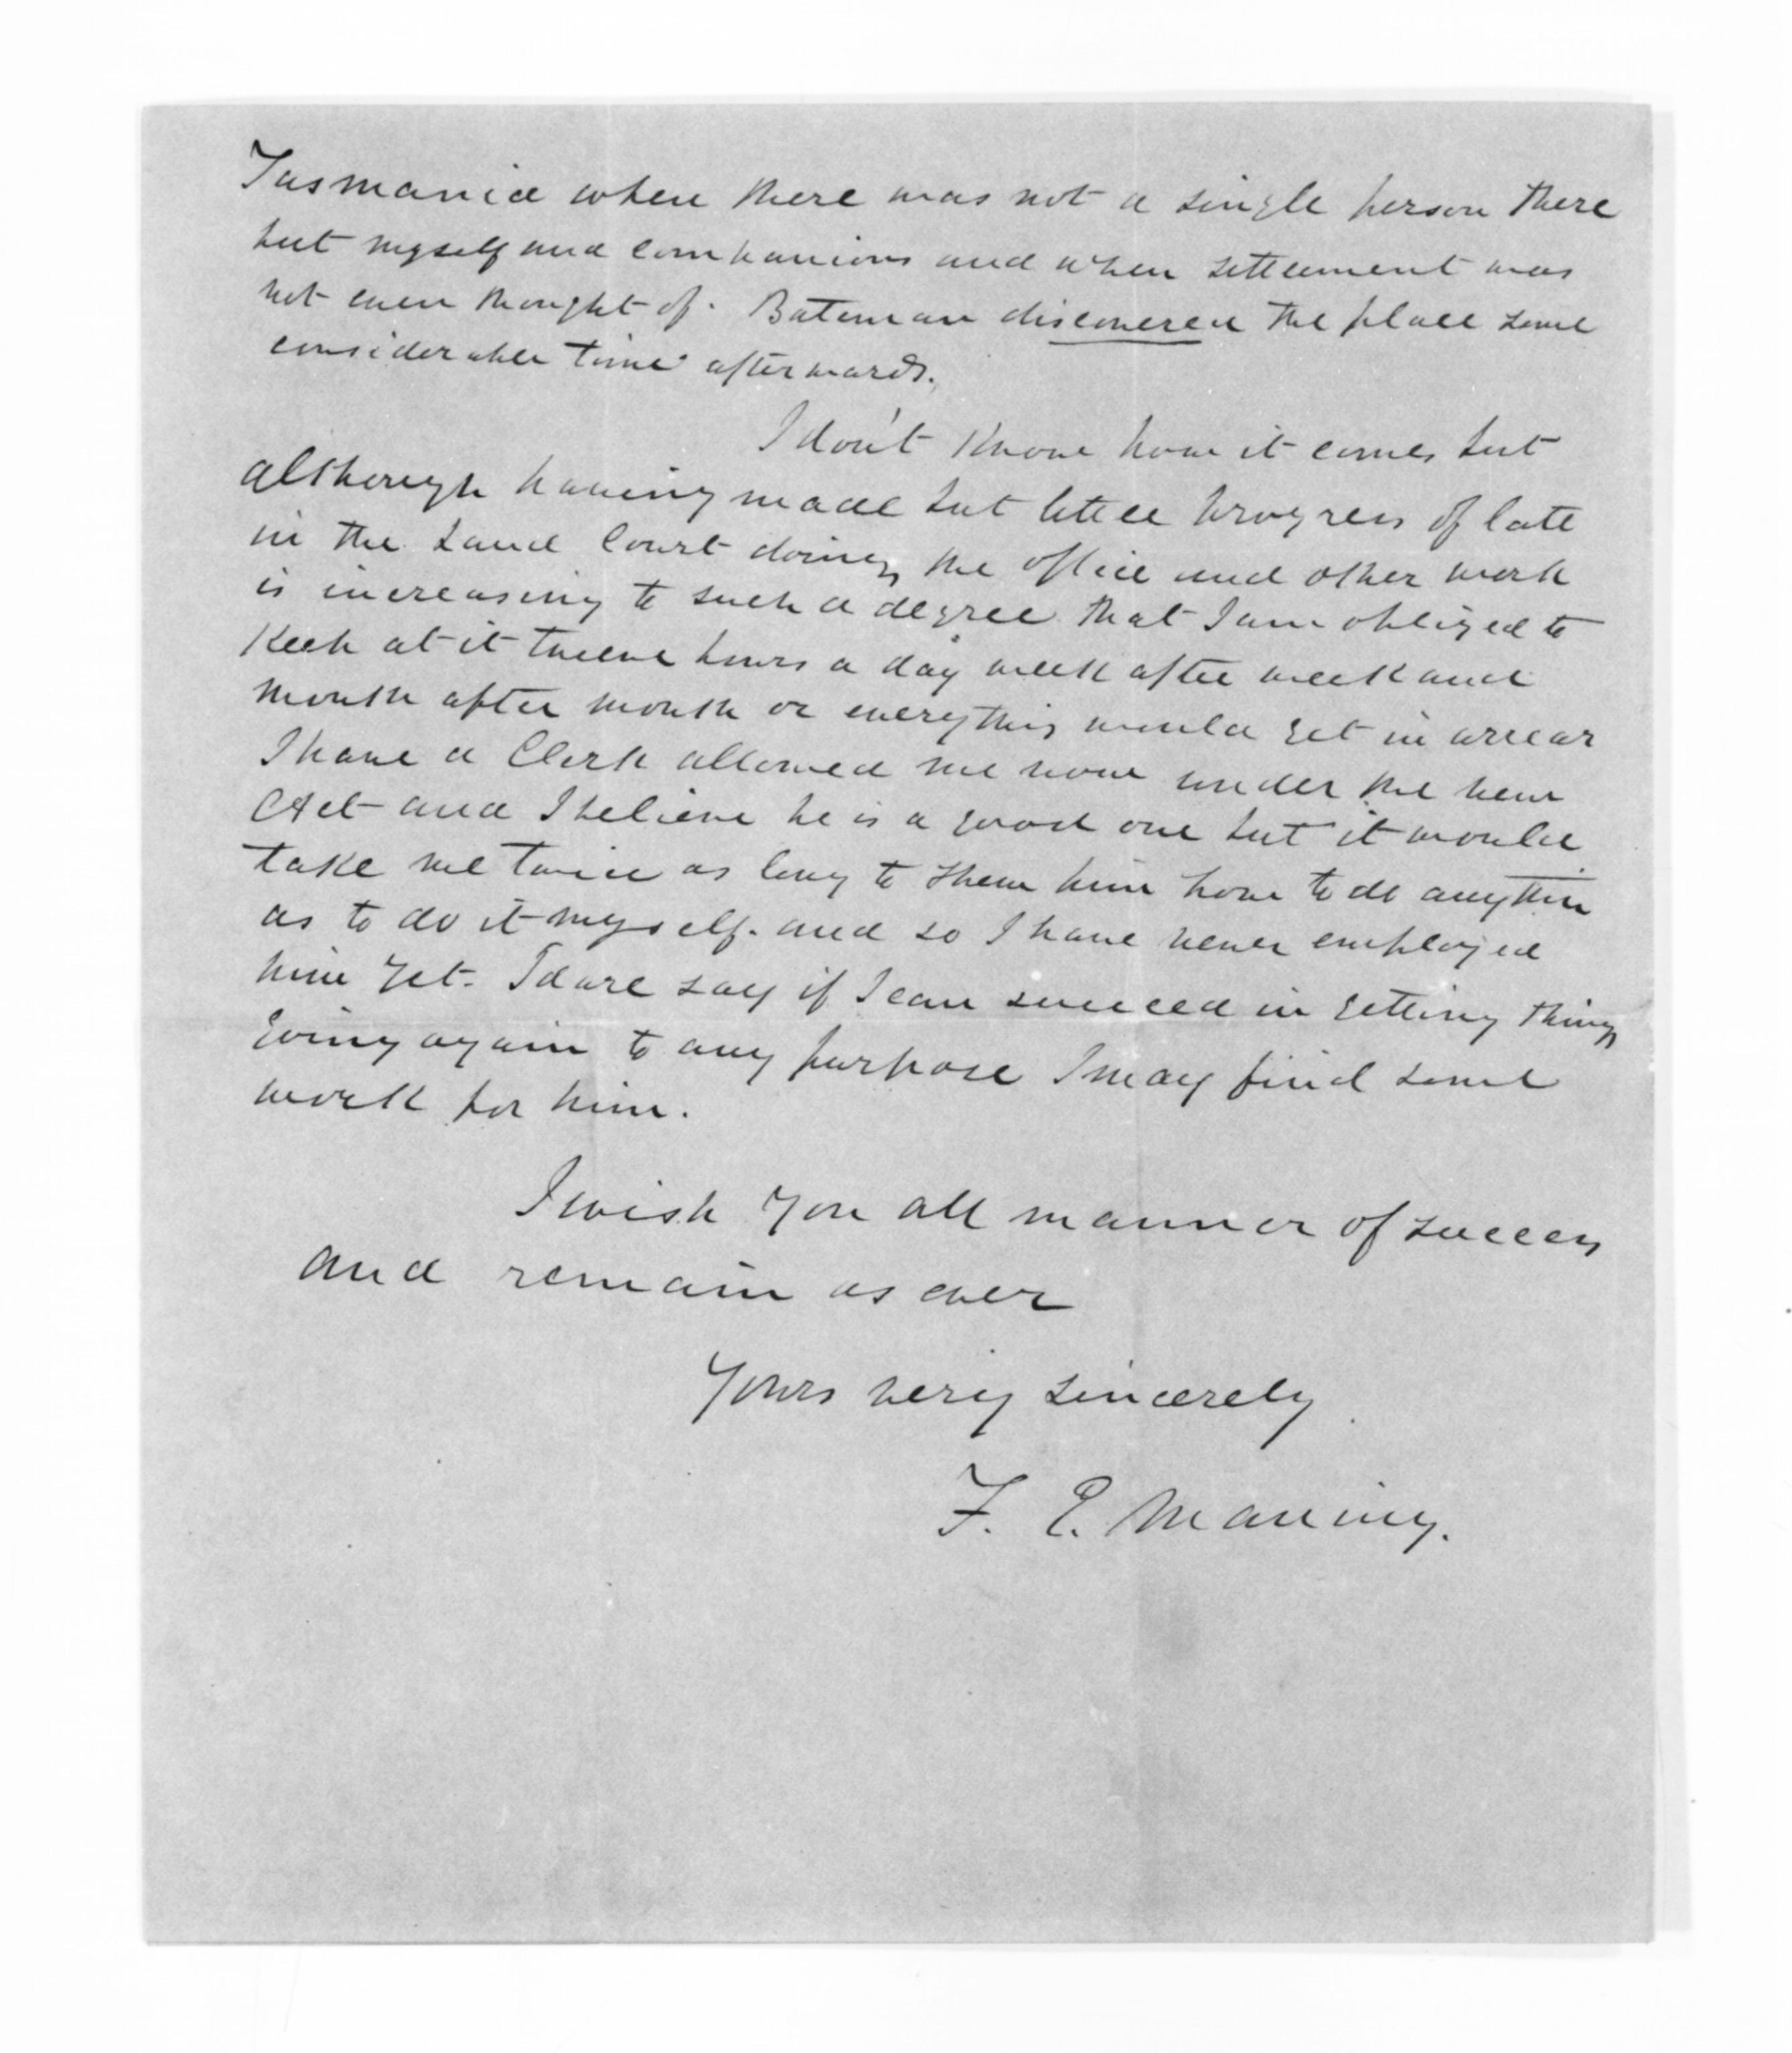 Tasmania when there was not a single person there
but myself and companions and when settlement was
not even thought of. Bateman discovered the place some
considerable time afterwards.
I don't know how it comes but
although having made but little progress of late
in the Land Court doings the office and other work
is increasing to such a degree that I am obliged to
Keep at it twelve hours a day week after week and
month after month or everything would get in arrear
I have a Clerk allowed me now under the new
Act and I believe he is a good one but it would
take me twice as long to shew him how to do anything
as to do it myself. and so I have never employed
him yet. I dare say if I can succeed in getting things
going again to any purpose I may find some
work for him.
I wish you all manner of success
and remain as ever
Yours very sincerely
F. E. Maning.